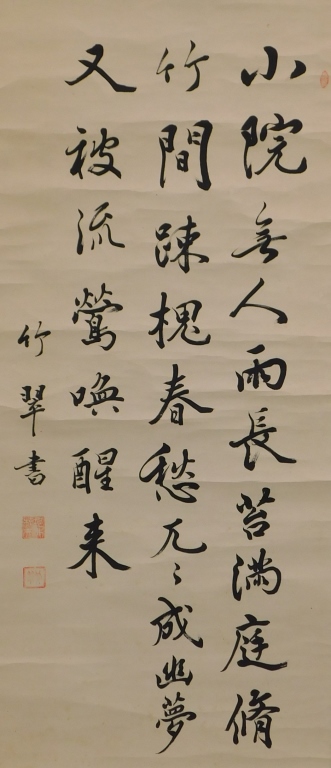 小院無人雨長苔満庭脩
竹間踈槐春愁兀〻成幽夢
又被流鶯喚醒来
竹翠書